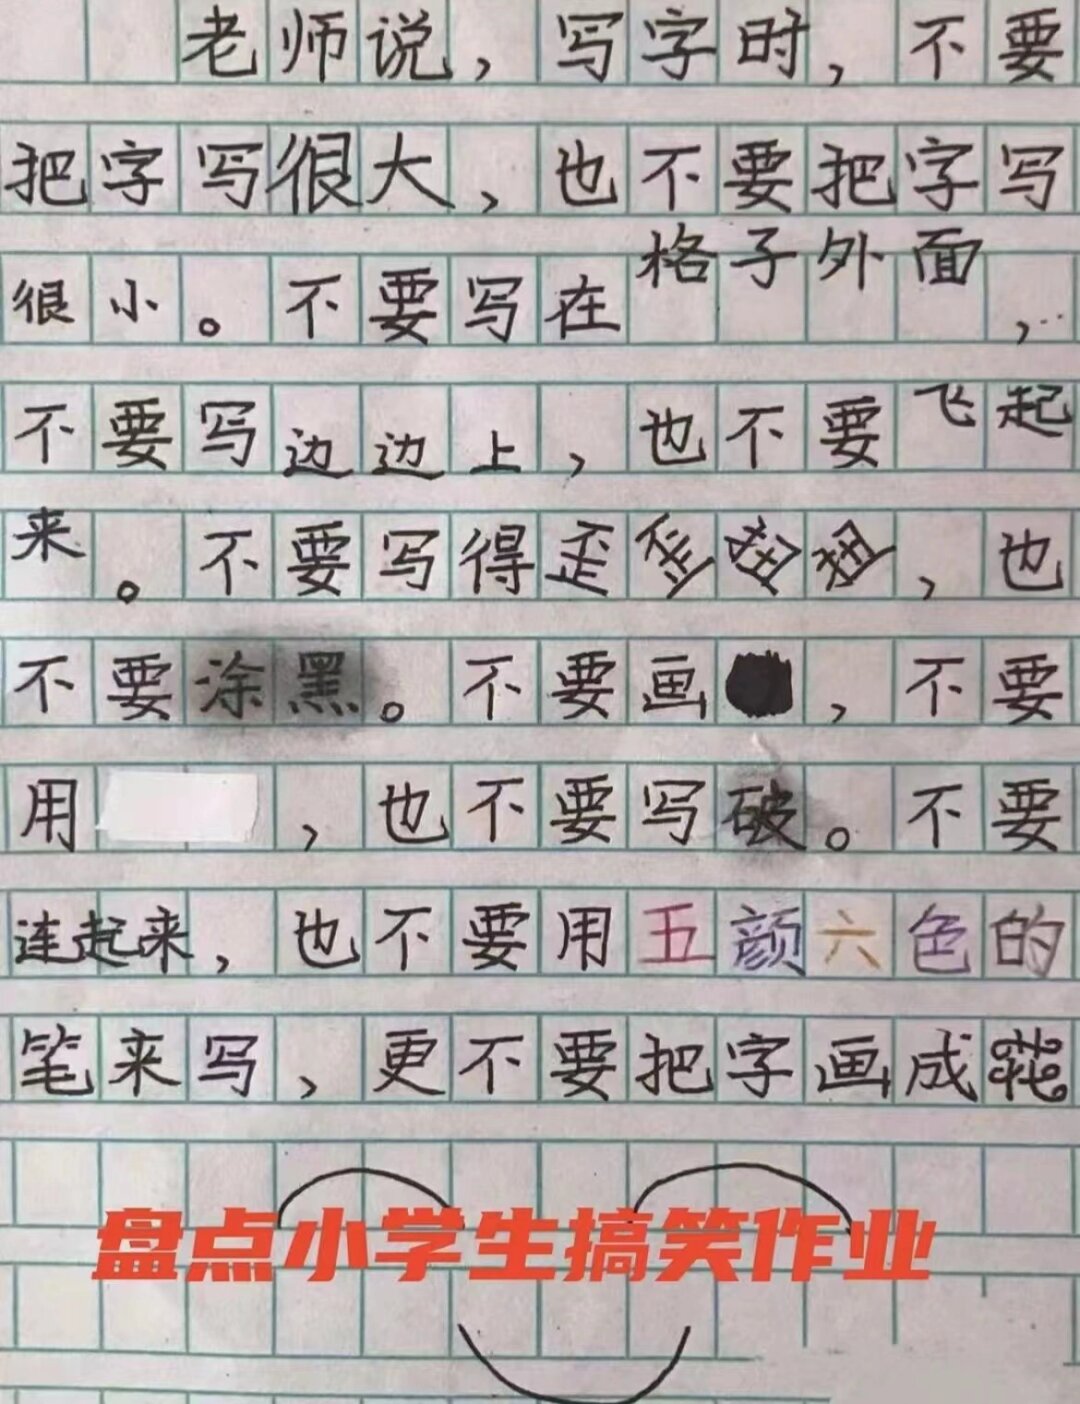 老师说，写字时，不要
把字写很大，也不要把字写
很小。不要写在格子外面，
不要写边边上，也不要飞起
来。不要写得歪歪扭扭，也
不要涂黑。不要画，不要
用，也不要写破。不要
连起来，也不要用五颜六色的
笔来写，更不要把字画成花
盘点小学生搞笑作业